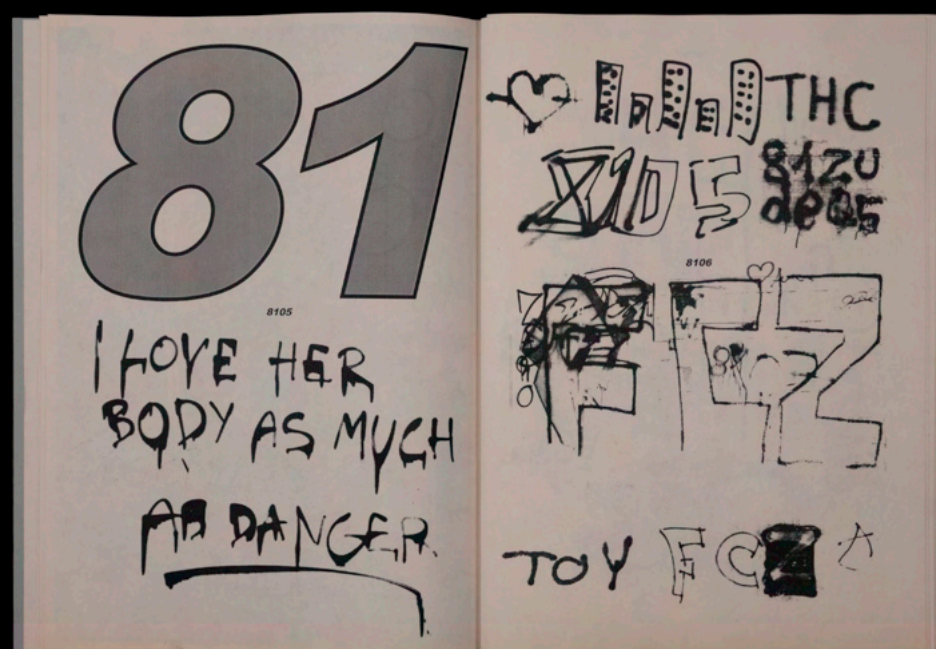 81
8105
I LOVE HER
BODY AS MUCH
AS DANGER
THC
8105
81ZU
de05
8106
FCZ
TOY FCZ